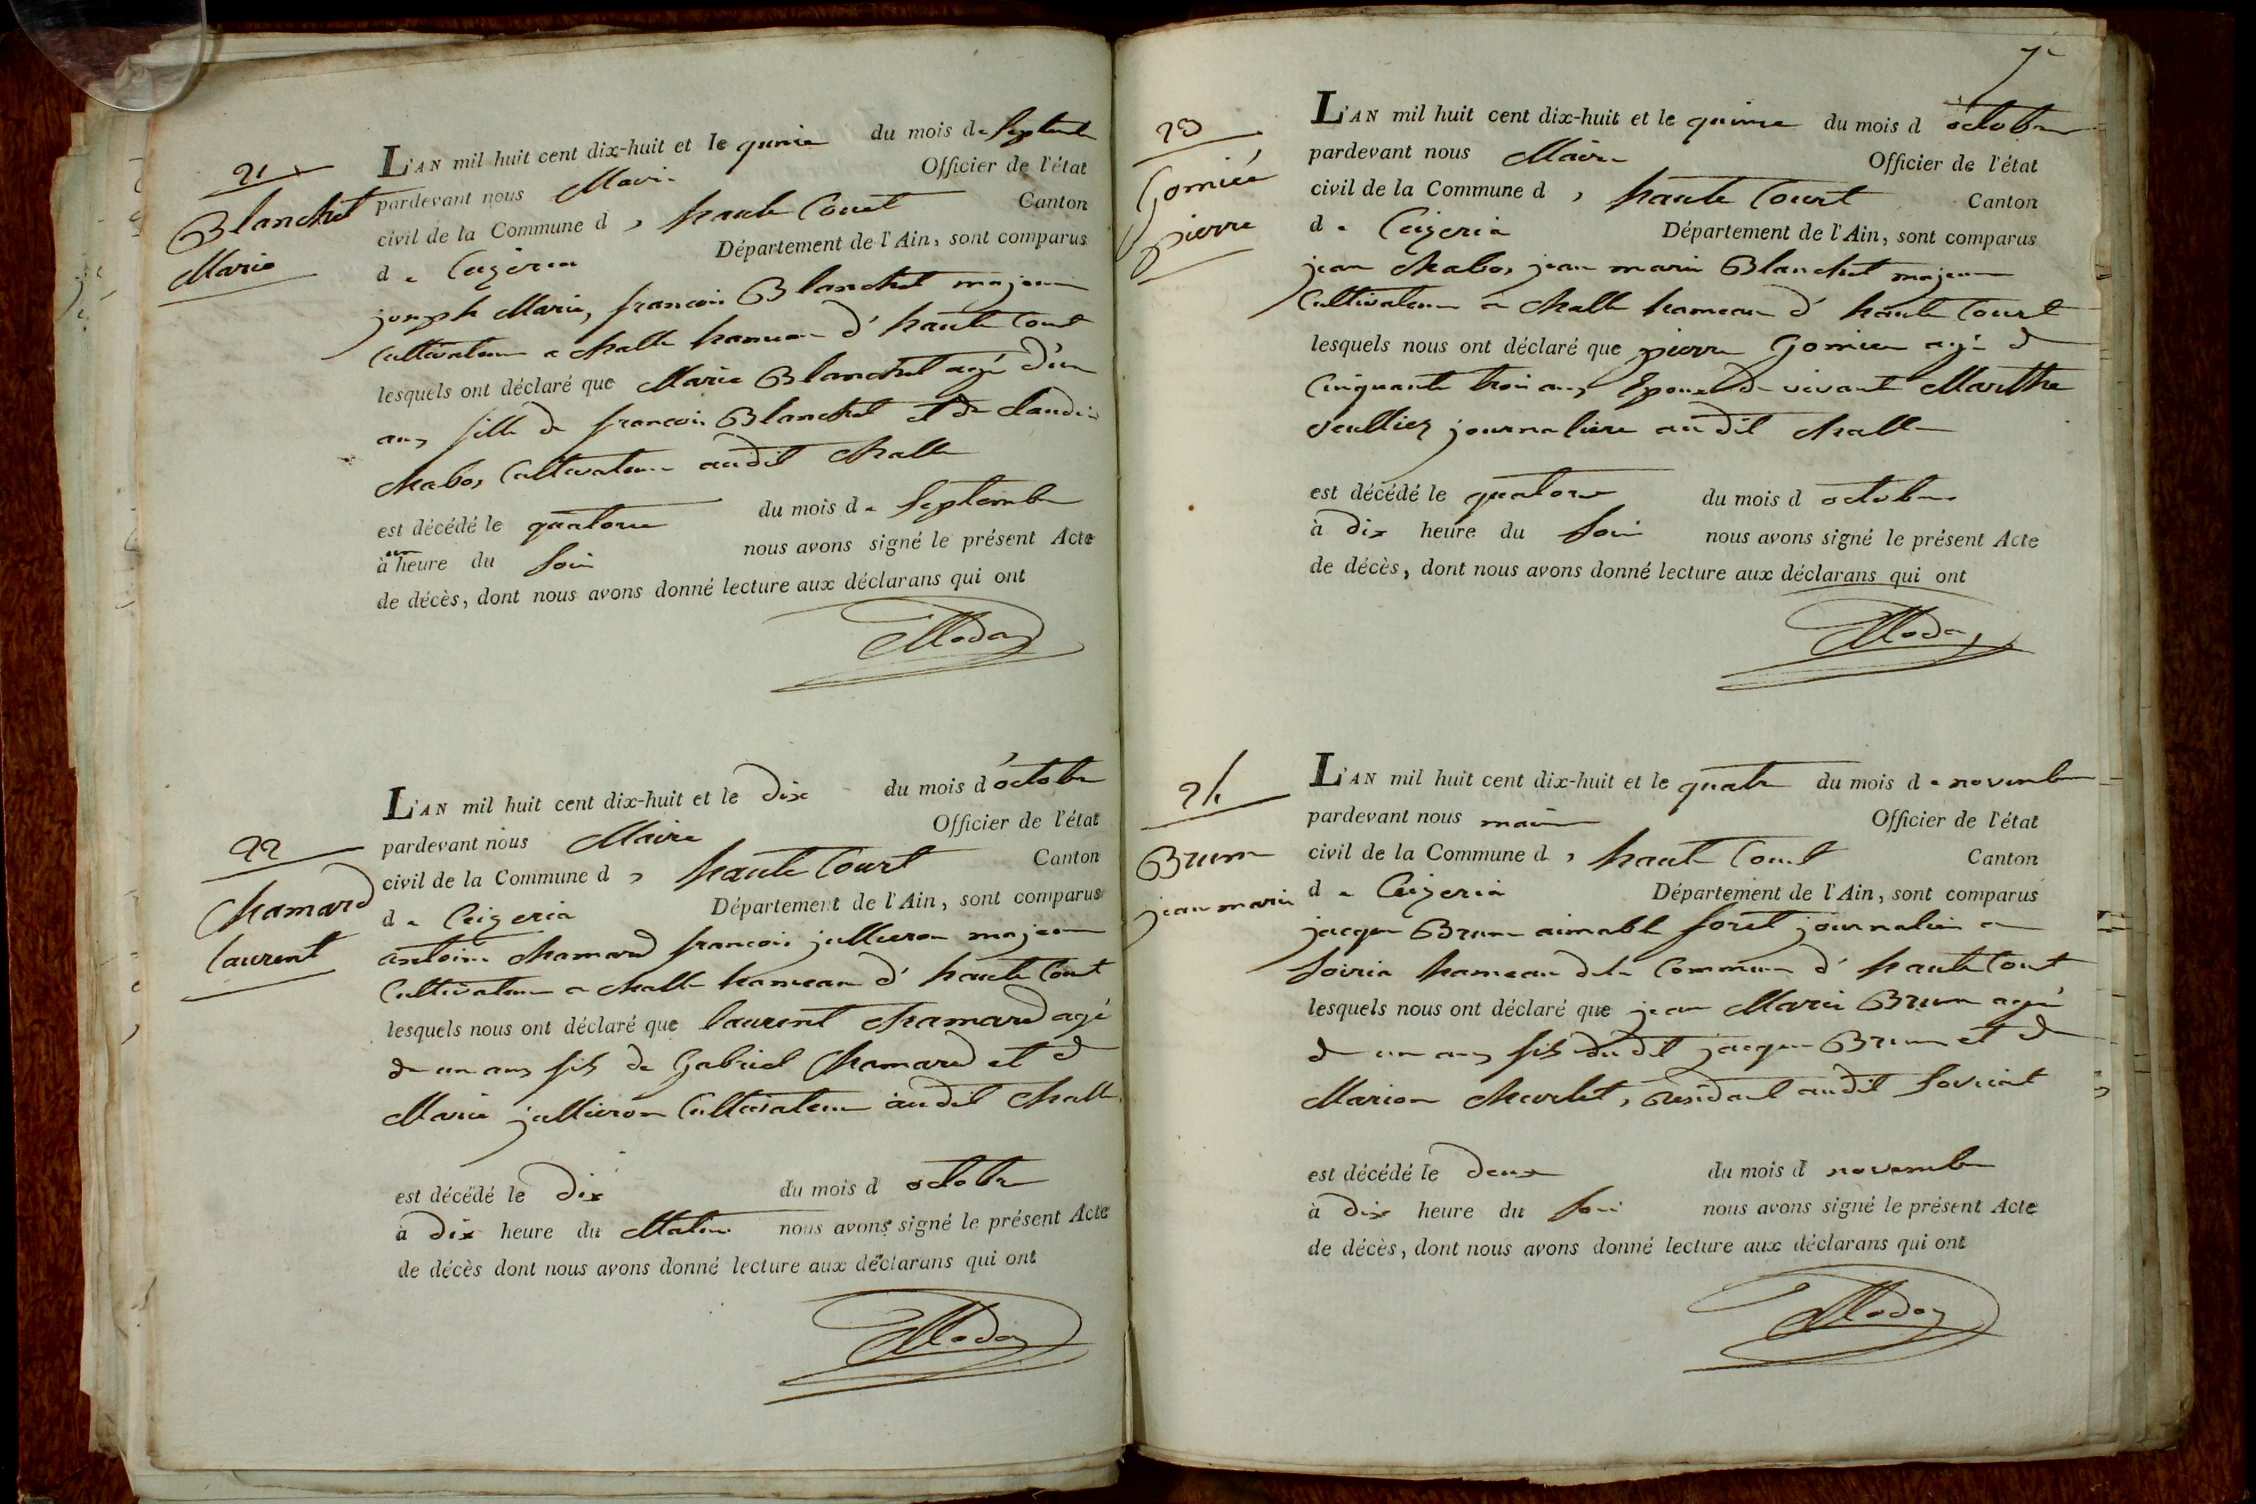 21
Blanchet
Marie
L'AN mil huit cent dix-huit et le quinze du mois de septembre
pardevant nous Maire Officier de l'état
civil de la Commune d, haute Court Canton
de Ceyzeria Département de l'Ain, sont comparus
joseph Marie, francois Blanchet majeur
Cultivateur a challe hameau d'haute Court
lesquels ont déclaré que Marie Blanchet agé d'un
ans fille de francois Blanchet et de claudine
chabos Cultivateur audit challe
est décédé le quatorze du mois de Septembre
à un heure du Soir nous avons signé le présent Acte
de décès, dont nous avons donné lecture aux déclarans qui ont
22
Chamard
laurent
L'AN mil huit cent dix-huit et le dix du mois d'octobre
pardevant nous Maire Officier de l'état
civil de la Commune d, haute Court Canton
de Ceizeria Département de l'Ain, sont comparus
antoine chamard francois jullieron majeur
Cultivateur a challe hameau d'haute Court
lesquels nous ont déclaré que laurent chamard agé
de un ans fils de Gabriel Chamard et d
Marie jullieron Cultivateur audit challe
est décédé le dix du mois d octobre
à dix heure du Matin nous avons signé le présent Acte
de décès dont nous avons donné lecture aux déclarans qui ont
7
23
Gomieé
pierre
L'AN mil huit cent dix-huit et le quinze du mois d octobre
pardevant nous Maire Officier de l'état
civil de la Commune d, haute Court Canton
de Ceizeria Département de l'Ain, sont comparus
jean chabos, jean marie Blanchet majeur
Cultivateur a challe hameau d'haute Court
lesquels nous ont déclaré que pierre Gomieé agé d
Cinquante trois ans, Epoux de vivant Marthe
journaliere audit challe
est décédé le quatorze du mois d octobre
à dix heure du Soir nous avons signé le présent Acte
de décès, dont nous avons donné lecture aux déclarans qui ont
24
Brunn
jean marie
L'AN mil huit cent dix-huit et le quatre du mois de novembre
pardevant nous maire Officier de l'état
civil de la Commune d, haute Court Canton
de Ceizeria Département de l'Ain, sont comparus
jacque Brunn aimable foret journalier a
Soiria hameau de la Commune d'haute Court
lesquels nous ont déclaré que jean Marie Brunn agé
de un ans fils dudit jacque Brunn et d
Marion, résidant audit
est décédé le deux du mois d novembre
à dix heure du Soir nous avons signé le présent Acte
de décès, dont nous avons donné lecture aux déclarans qui ont